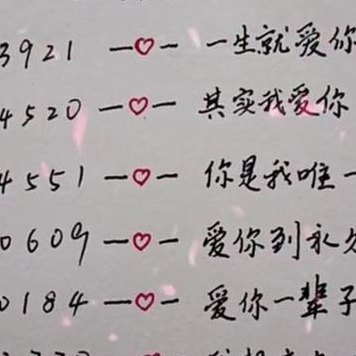 3921 —♡— 一生就爱你
4520 —♡— 其实我爱你
4551 —♡— 你是我唯一
0609 —♡— 爱你到永久
0184 —♡— 爱你一辈子